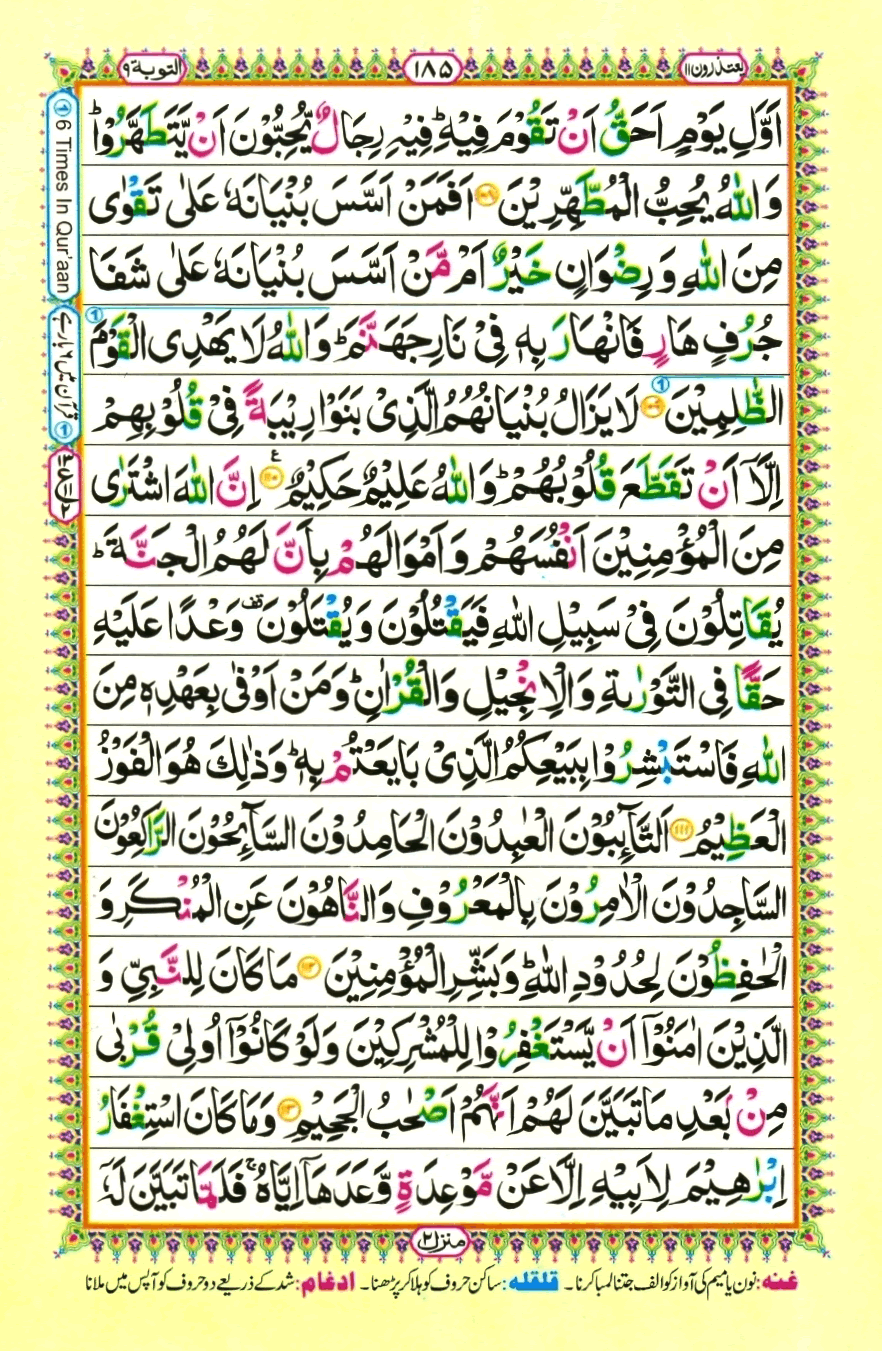 یعتذرون ۱۱
۱۸۵
التوبة ۹
اَوَّلِ يَوْمٍ اَحَقُّ اَنْ تَقُوْمَ فِيْهِ ؕ فِيْهِ رِجَالٌ يُّحِبُّوْنَ اَنْ يَّتَطَهَّرُوْا ؕ
وَاللّٰهُ يُحِبُّ الْمُطَّهِّرِيْنَ ۝۱۰۸ اَفَمَنْ اَسَّسَ بُنْيَانَهٗ عَلٰى تَقْوٰى
مِنَ اللّٰهِ وَرِضْوَانٍ خَيْرٌ اَمْ مَّنْ اَسَّسَ بُنْيَانَهٗ عَلٰى شَفَا
جُرُفٍ هَارٍ فَانْهَارَ بِهٖ فِىْ نَارِ جَهَنَّمَ ؕ وَاللّٰهُ لَا يَهْدِى الْقَوْمَ
الظّٰلِمِيْنَ ۝۱۰۹ لَا يَزَالُ بُنْيَانُهُمُ الَّذِىْ بَنَوْا رِيْبَةً فِىْ قُلُوْبِهِمْ
اِلَّاۤ اَنْ تَقَطَّعَ قُلُوْبُهُمْ ؕ وَاللّٰهُ عَلِيْمٌ حَكِيْمٌ ۝۱۱۰ اِنَّ اللّٰهَ اشْتَرٰى
مِنَ الْمُؤْمِنِيْنَ اَنْفُسَهُمْ وَاَمْوَالَهُمْ بِاَنَّ لَهُمُ الْجَنَّةَ ؕ
يُقَاتِلُوْنَ فِىْ سَبِيْلِ اللّٰهِ فَيَقْتُلُوْنَ وَيُقْتَلُوْنَ قف وَعْدًا عَلَيْهِ
حَقًّا فِى التَّوْرٰىةِ وَالْاِنْجِيْلِ وَالْقُرْاٰنِ ؕ وَمَنْ اَوْفٰى بِعَهْدِهٖ مِنَ
اللّٰهِ فَاسْتَبْشِرُوْا بِبَيْعِكُمُ الَّذِىْ بَايَعْتُمْ بِهٖ ؕ وَذٰلِكَ هُوَ الْفَوْزُ
الْعَظِيْمُ ۝۱۱۱ اَلتَّآئِبُوْنَ الْعٰبِدُوْنَ الْحَامِدُوْنَ السَّآئِحُوْنَ الرَّاكِعُوْنَ
السَّاجِدُوْنَ الْاٰمِرُوْنَ بِالْمَعْرُوْفِ وَالنَّاهُوْنَ عَنِ الْمُنْكَرِ وَ
الْحٰفِظُوْنَ لِحُدُوْدِ اللّٰهِ ؕ وَبَشِّرِ الْمُؤْمِنِيْنَ ۝۱۱۲ مَا كَانَ لِلنَّبِىِّ وَ
الَّذِيْنَ اٰمَنُوْۤا اَنْ يَّسْتَغْفِرُوْا لِلْمُشْرِكِيْنَ وَلَوْ كَانُوْۤا اُولِىْ قُرْبٰى
مِنْۢ بَعْدِ مَا تَبَيَّنَ لَهُمْ اَنَّهُمْ اَصْحٰبُ الْجَحِيْمِ ۝۱۱۳ وَمَا كَانَ اسْتِغْفَارُ
اِبْرٰهِيْمَ لِاَبِيْهِ اِلَّا عَنْ مَّوْعِدَةٍ وَّعَدَهَاۤ اِيَّاهُ ۚ فَلَمَّا تَبَيَّنَ لَهٗۤ
① 6 Times In Qur'aan
قرآن میں ۶ بار ہے ①
منزل ۲
غنه: نون یا میم کی آواز کو الف جتنا لمبا کرنا۔ قلقله: ساکن حروف کو ہلا کر پڑھنا۔ ادغام: شد کے ذریعے دو حروف کو آپس میں ملانا